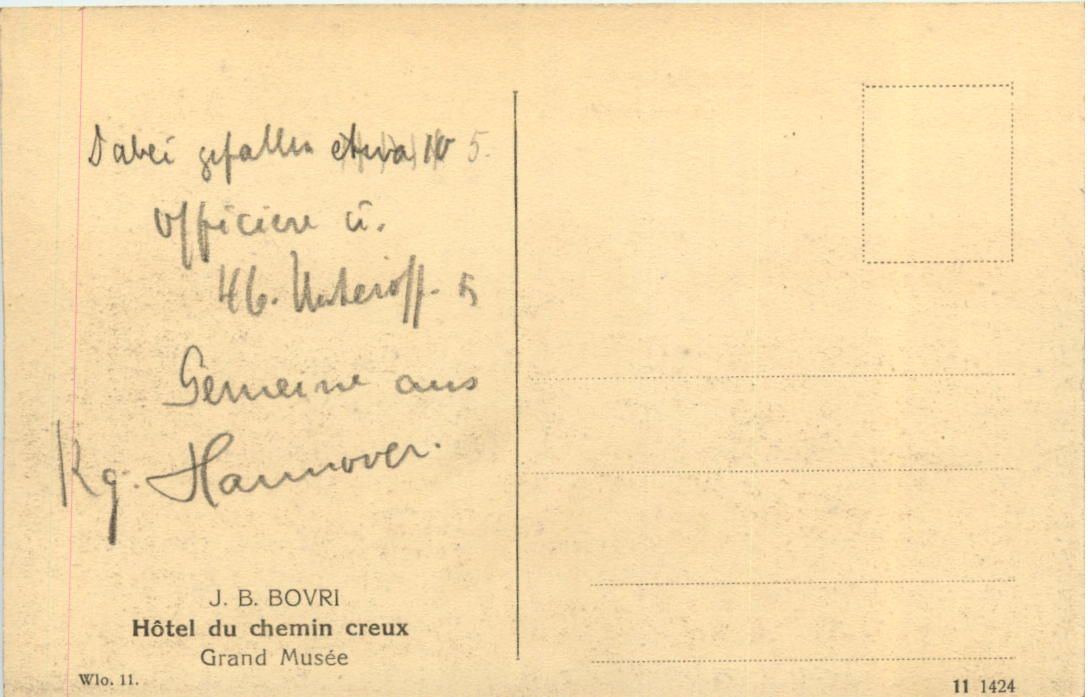 Dabei gefallen etwa 10 5.
Officiere u.
46. Unteroff. 5
Gemeine aus
Kg. Hannover.
J. B. BOVRI
Hôtel du chemin creux
Grand Musée
Wlo. 11.
11 1424